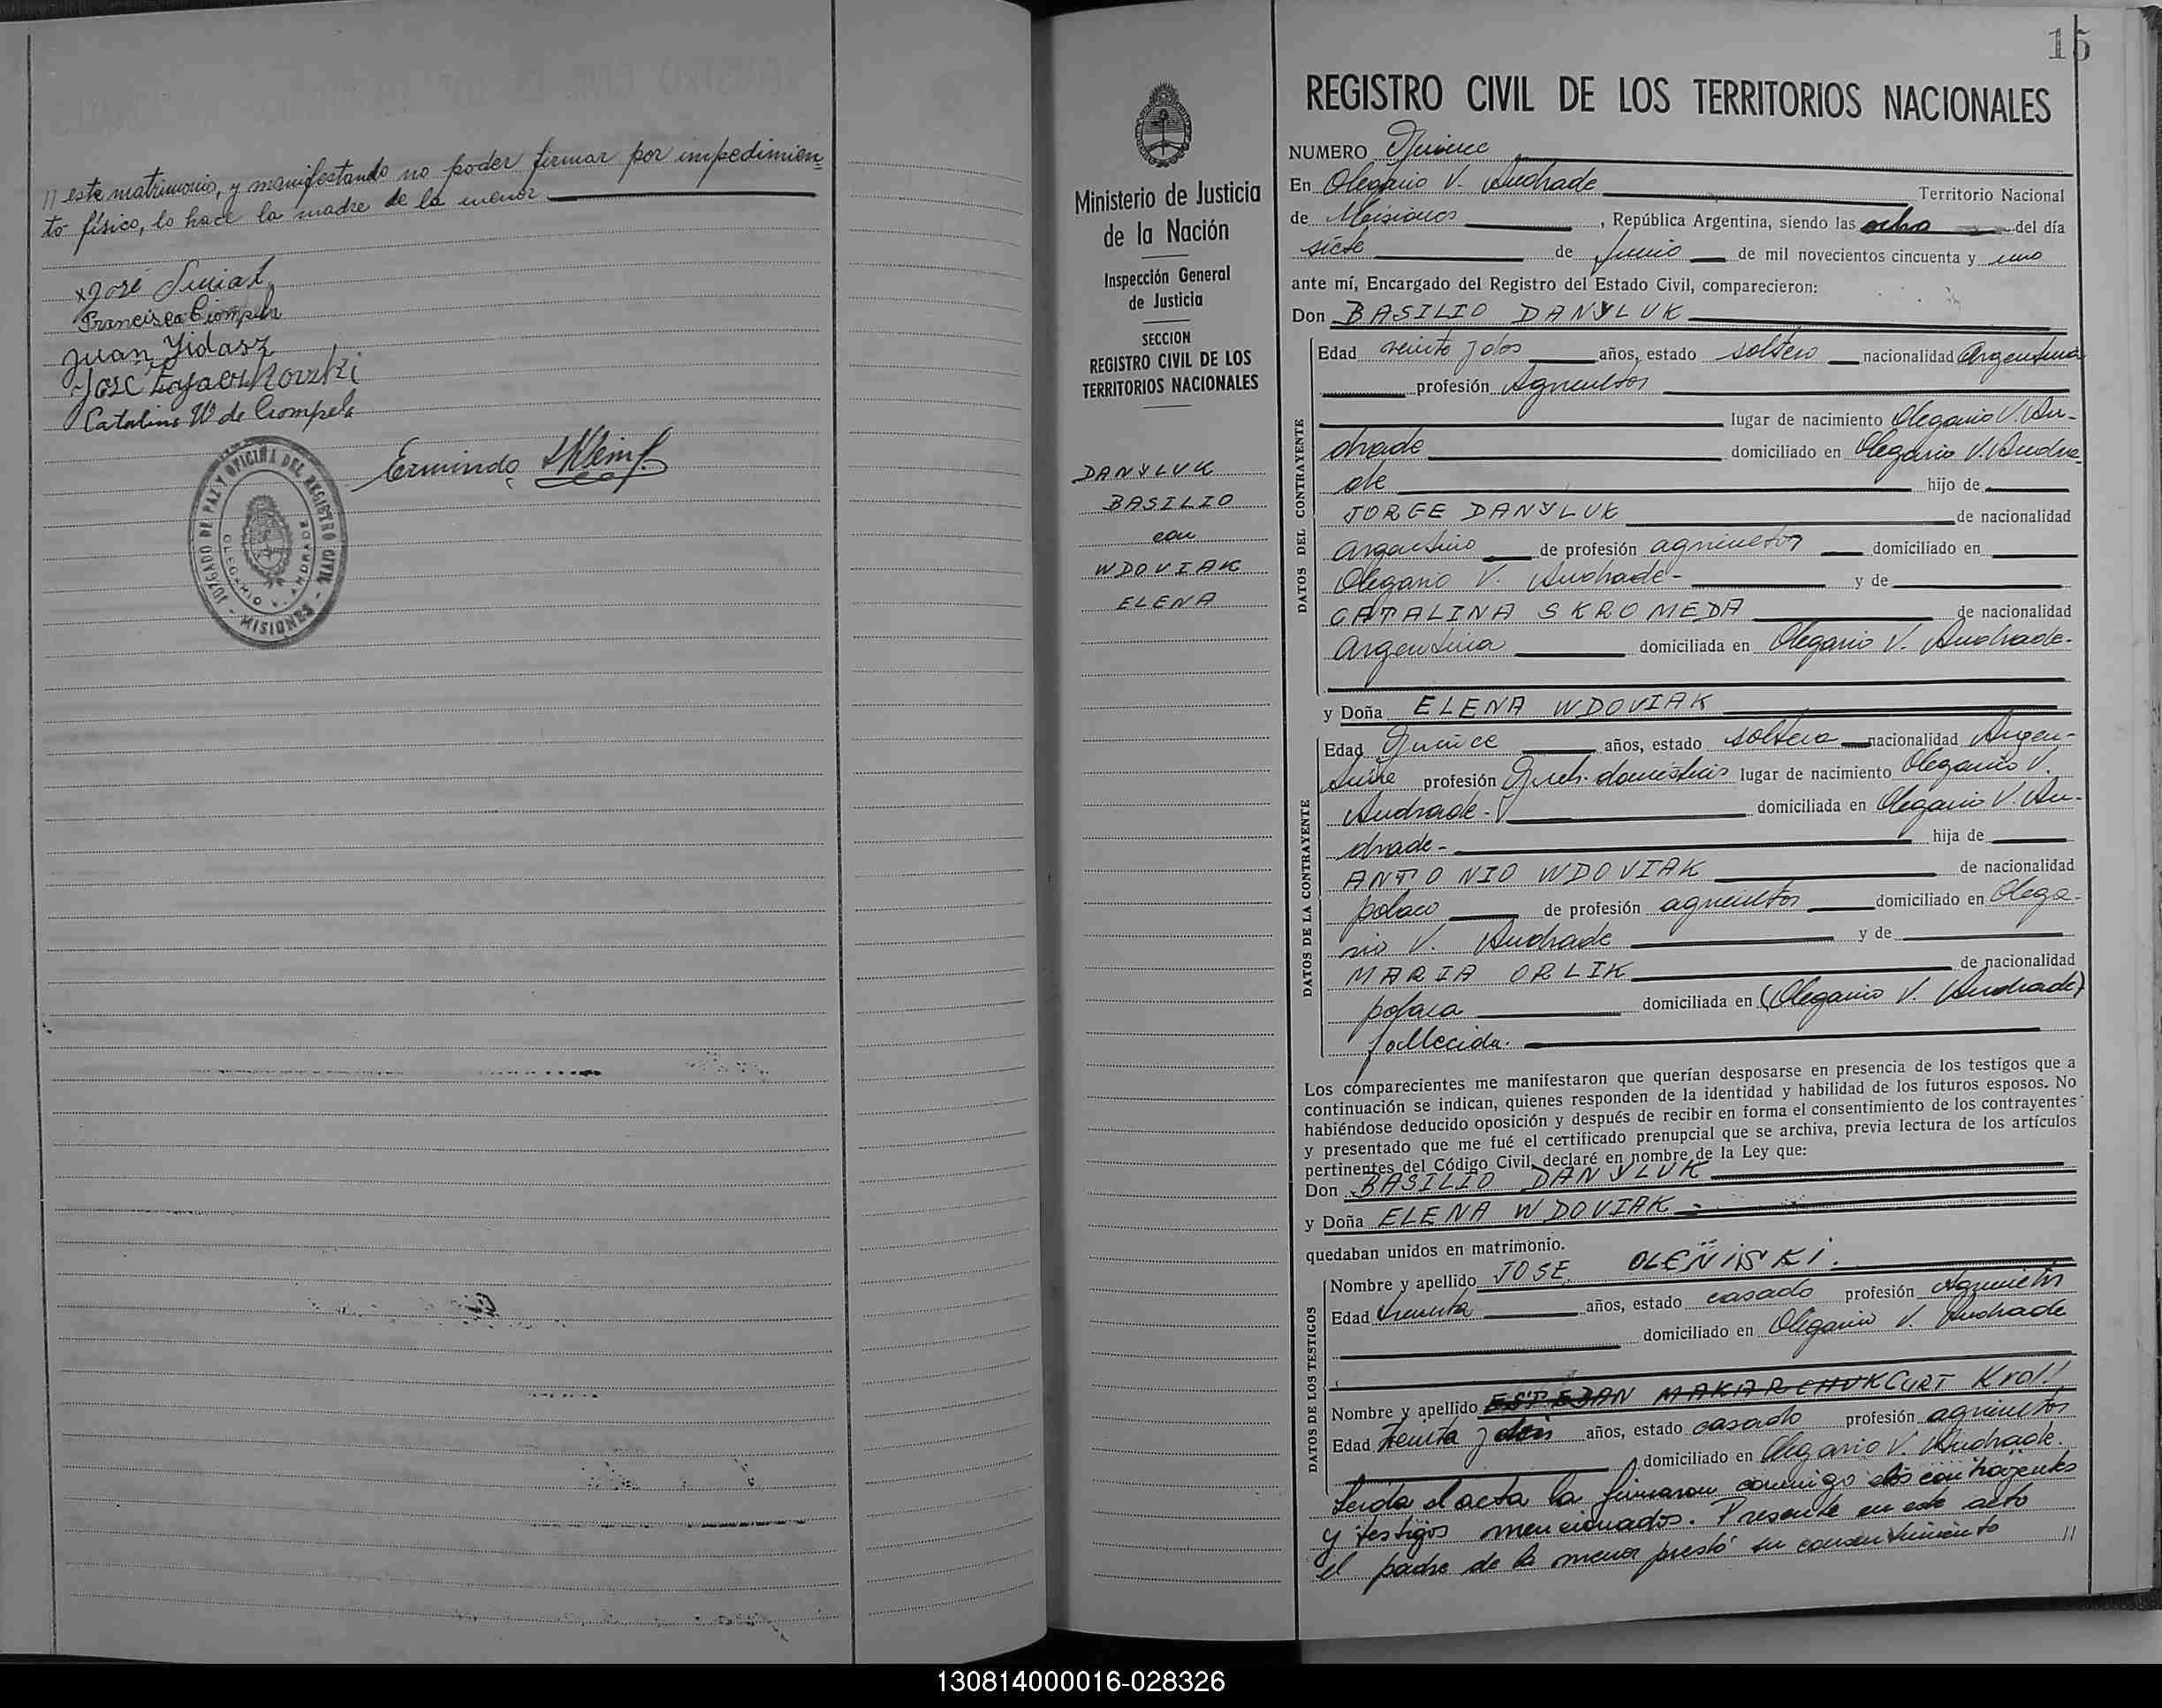 // este matrimonio, y manifestando no poder firmar por impedimien=
to físico, lo hace la madre de la menor
x José
Francisca Ciompela
Juan Fidasz
José
Catalina W de Ciompela
Ermindo
JUZGADO DE PAZ Y OFICINA DEL REGISTRO CIVIL - MISIONES -
OLEGARIO V. ANDRADE
Ministerio de Justicia
de la Nación
Inspección General
de Justicia
SECCION
REGISTRO CIVIL DE LOS
TERRITORIOS NACIONALES
DANYLUK
BASILIO
con
WDOVIAK
ELENA
15
REGISTRO CIVIL DE LOS TERRITORIOS NACIONALES
NUMERO Quince
En Olegario V. Andrade Territorio Nacional
de Misiones, República Argentina, siendo las ocho del día
siete de Junio de mil novecientos cincuenta y uno
ante mí, Encargado del Registro del Estado Civil, comparecieron:
Don BASILIO DANYLUK
DATOS DEL CONTRAYENTE
Edad veinte y dos años, estado soltero nacionalidad Argentina
profesión Agricultor
lugar de nacimiento Olegario V. An-
drade domiciliado en Olegario V. Andra-
de hijo de
JORGE DANYLUK de nacionalidad
argentino de profesión agricultor domiciliado en
Olegario V. Andrade- y de
CATALINA SKROMEDA de nacionalidad
argentina domiciliada en Olegario V. Andrade-
y Doña ELENA WDOVIAK
DATOS DE LA CONTRAYENTE
Edad Quince años, estado soltera nacionalidad Argen-
tina profesión Queh. domésticos lugar de nacimiento Olegario V.
Andrade- domiciliada en Olegario V. An-
drade- hija de
ANTONIO WDOVIAK de nacionalidad
polaco de profesión agricultor domiciliado en Olega-
rio V. Andrade y de
MARIA ORLIK de nacionalidad
polaca domiciliada en (Olegario V. Andrade)
fallecida.
Los comparecientes me manifestaron que querían desposarse en presencia de los testigos que a
continuación se indican, quienes responden de la identidad y habilidad de los futuros esposos. No
habiéndose deducido oposición y después de recibir en forma el consentimiento de los contrayentes
y presentado que me fué el certificado prenupcial que se archiva, previa lectura de los artículos
pertinentes del Código Civil, declaré en nombre de la Ley que:
Don BASILIO DANYLUK
y Doña ELENA WDOVIAK -
quedaban unidos en matrimonio.
DATOS DE LOS TESTIGOS
Nombre y apellido JOSE OLEÑISKI.
Edad treinta años, estado casado profesión Agricultor
domiciliado en Olegario V. Andrade
Nombre y apellido ESTEBAN MAKARCHUK CURT Kroll
Edad treinta y años, estado casado profesión agricultor
domiciliado en Olegario V. Andrade.
Leida el acta la firmaron conmigo los contrayentes
y testigos mencionados. Presente en este acto
el padre de la menor prestó su consentimiento //
130814000016-028326